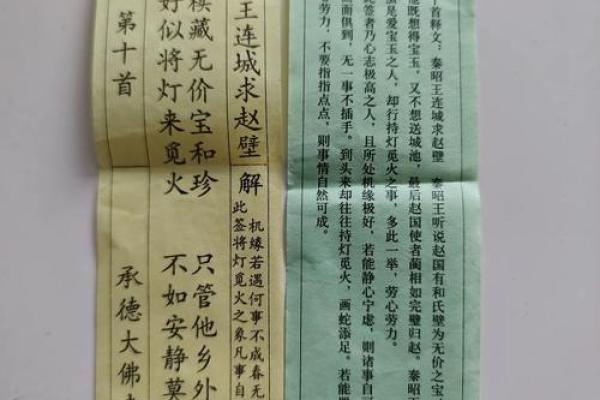 首释文：秦昭王连城求赵璧 秦昭王听说赵国有和氏璧为无价之宝
他既想得宝玉，又不想送城池，最后赵国使者蔺相如完璧归赵。秦昭王
是爱宝玉之人，却行持灯觅火之事，多此一举，劳心劳力。
此签者乃心志极高之人，且所处机缘极好，若能静心宁虑，则诸事自
面俱到，无一事不插手。到头来却往往持灯觅火，画蛇添足。若能
劳力，不要指指点点，则事情自然可成。
王连城求赵璧
解
机缘若遇何事不成春无
此签将灯觅火之象凡事自
椟藏无价宝和珍 只管他乡外
好似将灯来觅火 不如安静莫
第十首 承德大佛